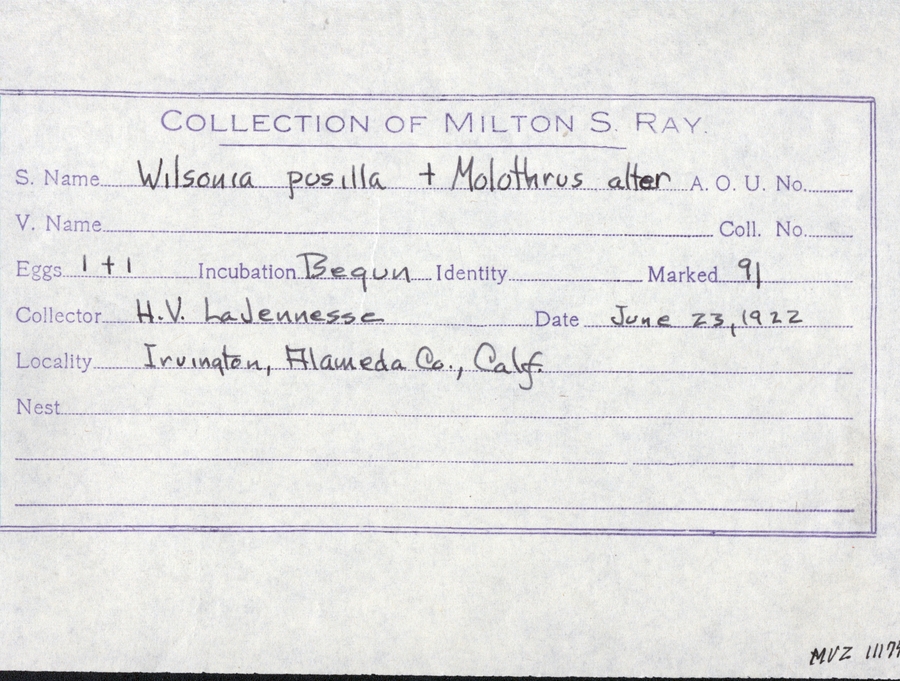 COLLECTION OF MILTON S. RAY.
S. Name Wilsonia pusilla + Molothrus alter A. O. U. No.
V. Name Coll. No.
Eggs 1+1 Incubation Begun Identity Marked 91
Collector H.V. LaJennesse Date June 23, 1922
Locality Irvington, Alameda Co., Calf.
Nest
MVZ